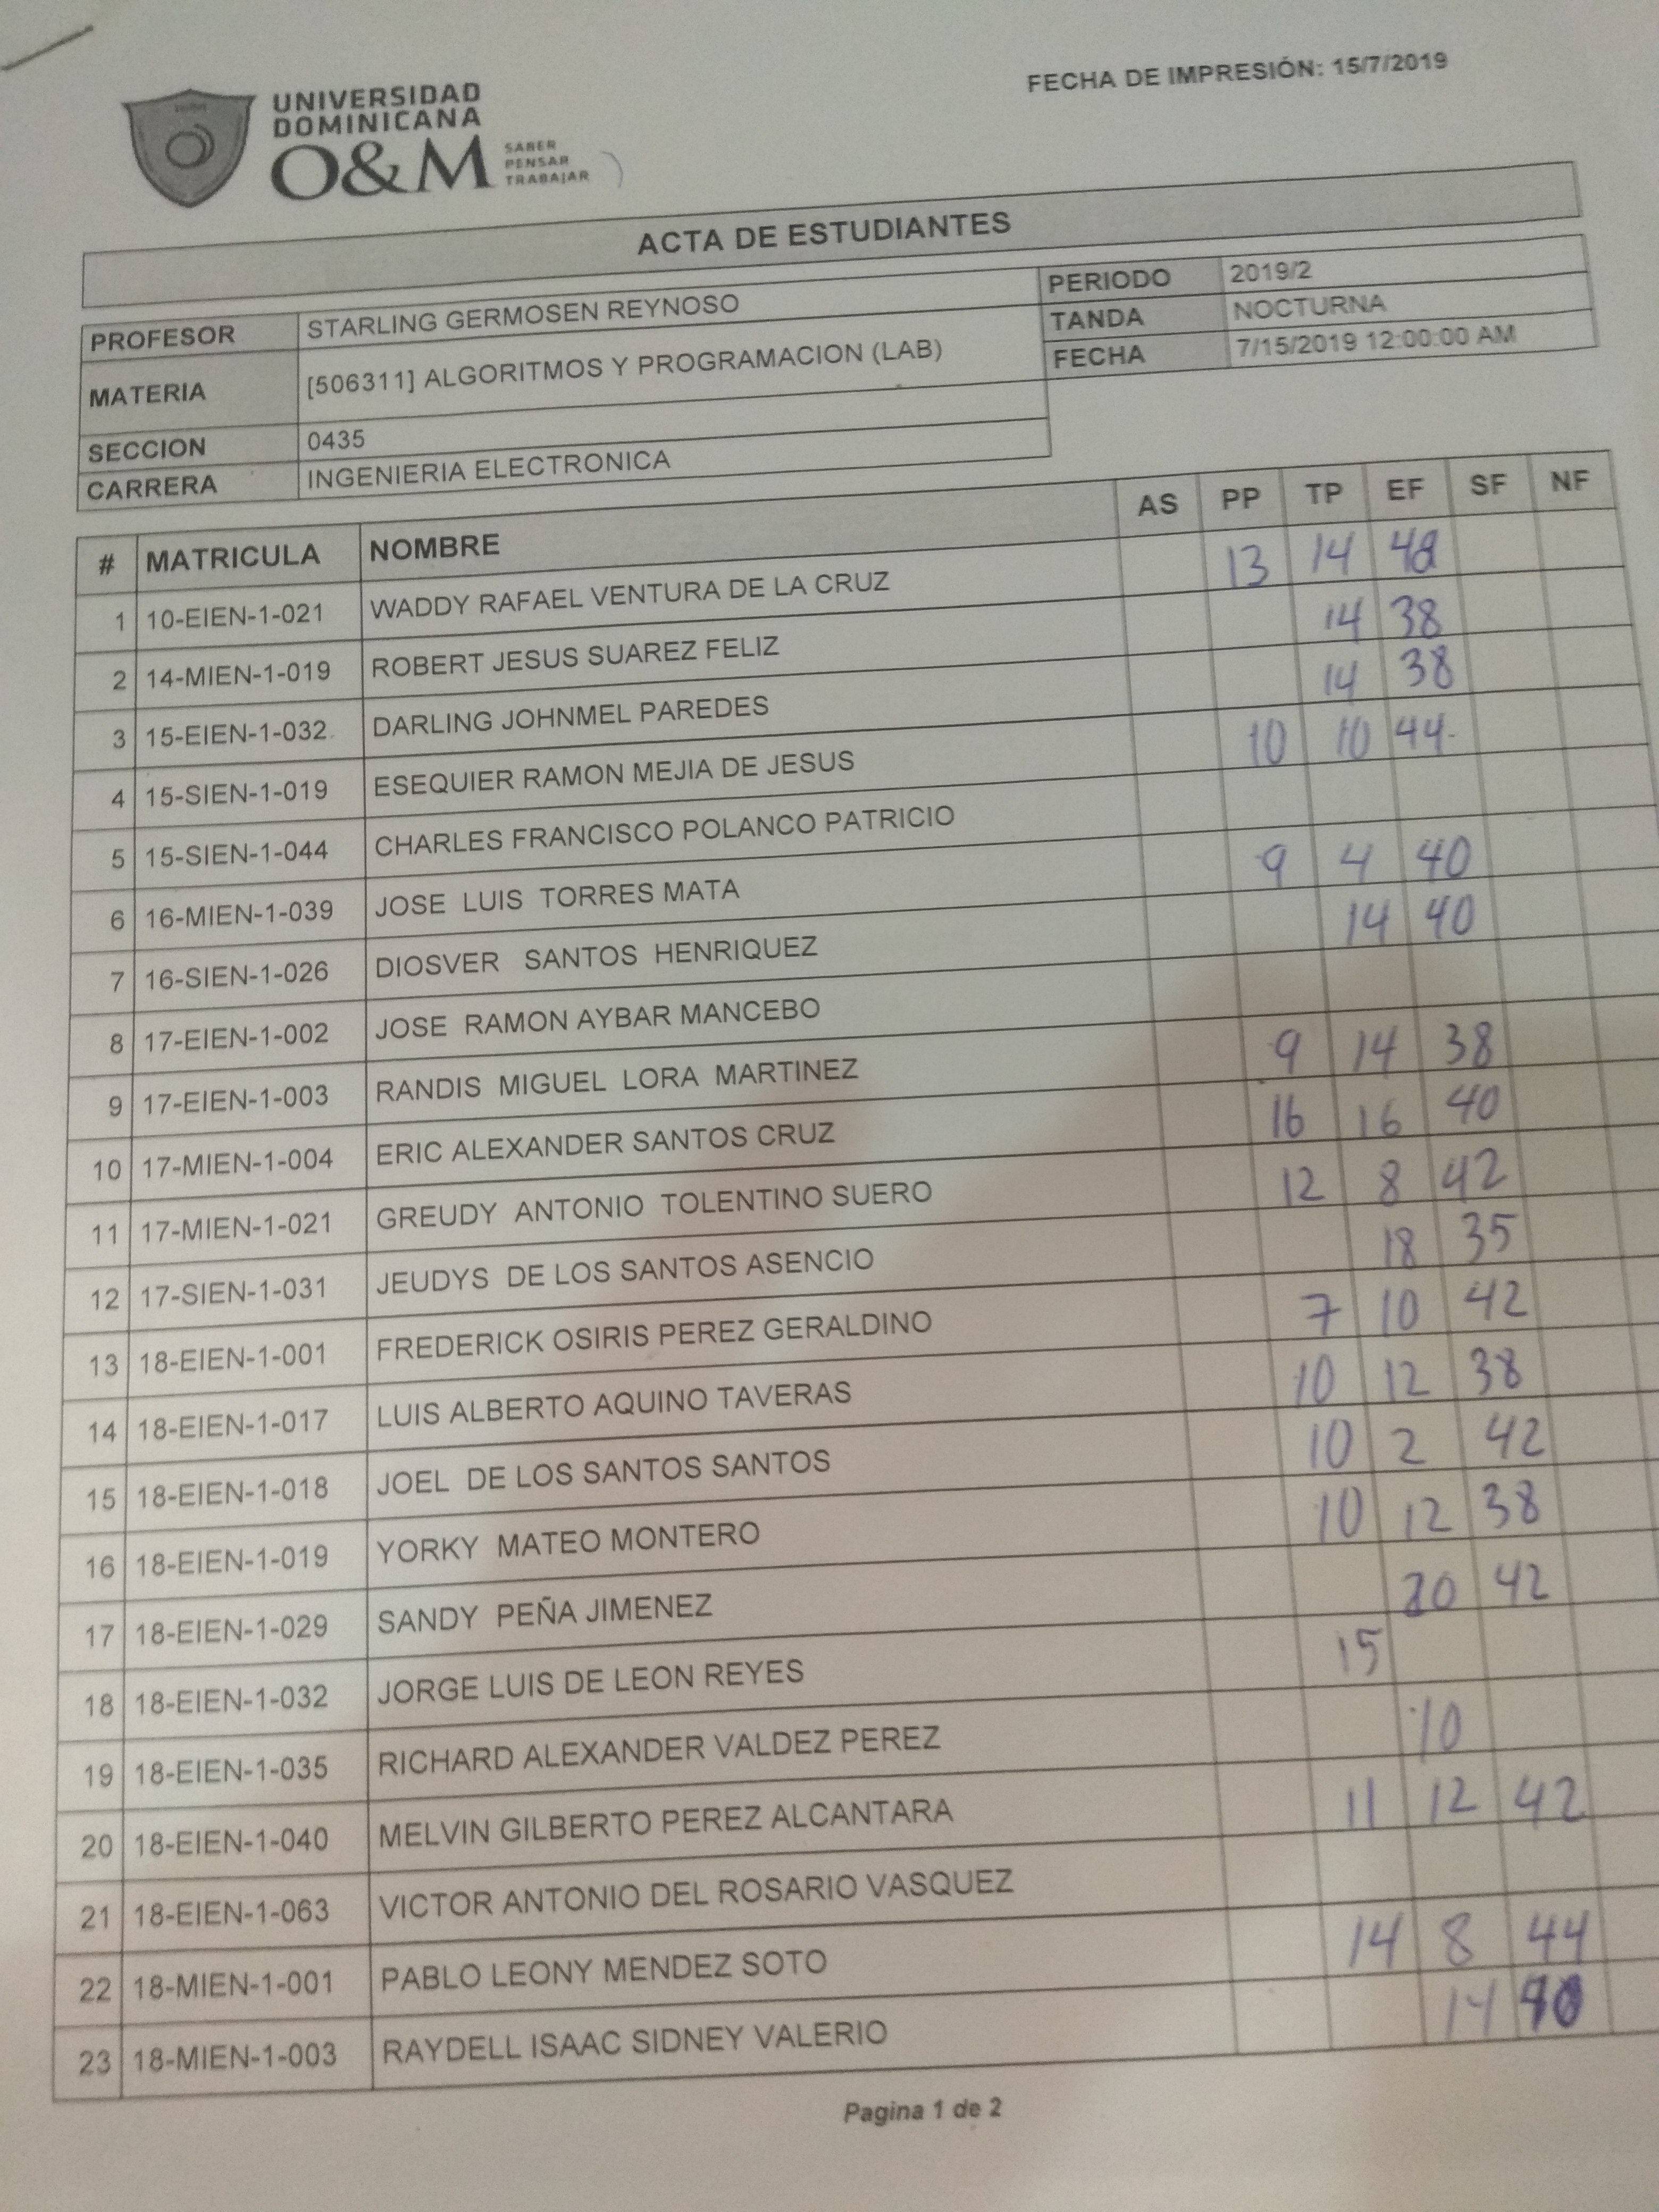 FECHA DE IMPRESIÓN: 15/7/2019
UNIVERSIDAD
DOMINICANA
O&M
SABER
PENSAR
TRABAJAR
ACTA DE ESTUDIANTES
PROFESOR STARLING GERMOSEN REYNOSO
MATERIA [506311] ALGORITMOS Y PROGRAMACION (LAB)
SECCION 0435
CARRERA INGENIERIA ELECTRONICA
PERIODO 2019/2
TANDA NOCTURNA
FECHA 7/15/2019 12:00:00 AM
# MATRICULA NOMBRE AS PP TP EF SF NF
1 10-EIEN-1-021 WADDY RAFAEL VENTURA DE LA CRUZ 13 14
2 14-MIEN-1-019 ROBERT JESUS SUAREZ FELIZ 14 38
3 15-EIEN-1-032 DARLING JOHNMEL PAREDES 14 38
4 15-SIEN-1-019 ESEQUIER RAMON MEJIA DE JESUS 10 10 44
5 15-SIEN-1-044 CHARLES FRANCISCO POLANCO PATRICIO
6 16-MIEN-1-039 JOSE LUIS TORRES MATA 9 4 40
7 16-SIEN-1-026 DIOSVER SANTOS HENRIQUEZ 14 40
8 17-EIEN-1-002 JOSE RAMON AYBAR MANCEBO
9 17-EIEN-1-003 RANDIS MIGUEL LORA MARTINEZ 9 14 38
10 17-MIEN-1-004 ERIC ALEXANDER SANTOS CRUZ 16 16 40
11 17-MIEN-1-021 GREUDY ANTONIO TOLENTINO SUERO 12 8 42
12 17-SIEN-1-031 JEUDYS DE LOS SANTOS ASENCIO 18 35
13 18-EIEN-1-001 FREDERICK OSIRIS PEREZ GERALDINO 7 10 42
14 18-EIEN-1-017 LUIS ALBERTO AQUINO TAVERAS 10 12 38
15 18-EIEN-1-018 JOEL DE LOS SANTOS SANTOS 10 2 42
16 18-EIEN-1-019 YORKY MATEO MONTERO 10 12 38
17 18-EIEN-1-029 SANDY PEÑA JIMENEZ 20 42
18 18-EIEN-1-032 JORGE LUIS DE LEON REYES 15
19 18-EIEN-1-035 RICHARD ALEXANDER VALDEZ PEREZ 10
20 18-EIEN-1-040 MELVIN GILBERTO PEREZ ALCANTARA 11 12 42
21 18-EIEN-1-063 VICTOR ANTONIO DEL ROSARIO VASQUEZ
22 18-MIEN-1-001 PABLO LEONY MENDEZ SOTO 14 8 44
23 18-MIEN-1-003 RAYDELL ISAAC SIDNEY VALERIO 14
Pagina 1 de 2